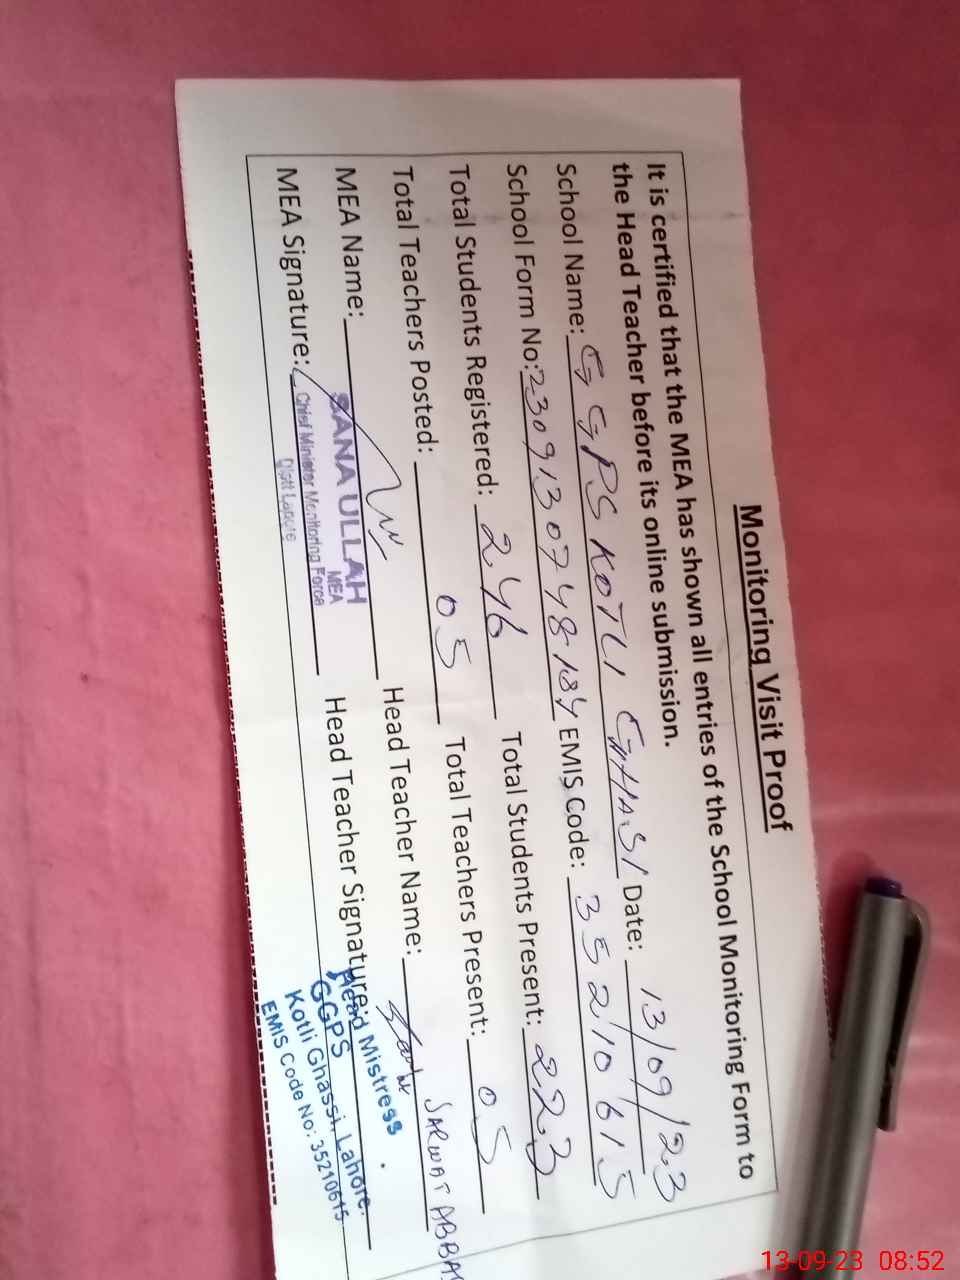 Monitoring Visit Proof
It is certified that the MEA has shown all entries of the School Monitoring Form to
the Head Teacher before its online submission.
School Name: GGPS KOTLI GHASI Date: 13/09/23
School Form No: 2309130748184 EMIS Code: 35210615
Total Students Registered: 246 Total Students Present: 223
Total Teachers Posted: 05 Total Teachers Present: 05
MEA Name: Head Teacher Name: SARWAT ABBAS
SANA ULLAH
MEA
MEA Signature: Head Teacher Signature:
Chief Minister Monitoring Force
Distt Lahore
Head Mistress
GGPS
Kotli Ghassi, Lahore.
EMIS Code No: 35210615
13-09-23 08:52